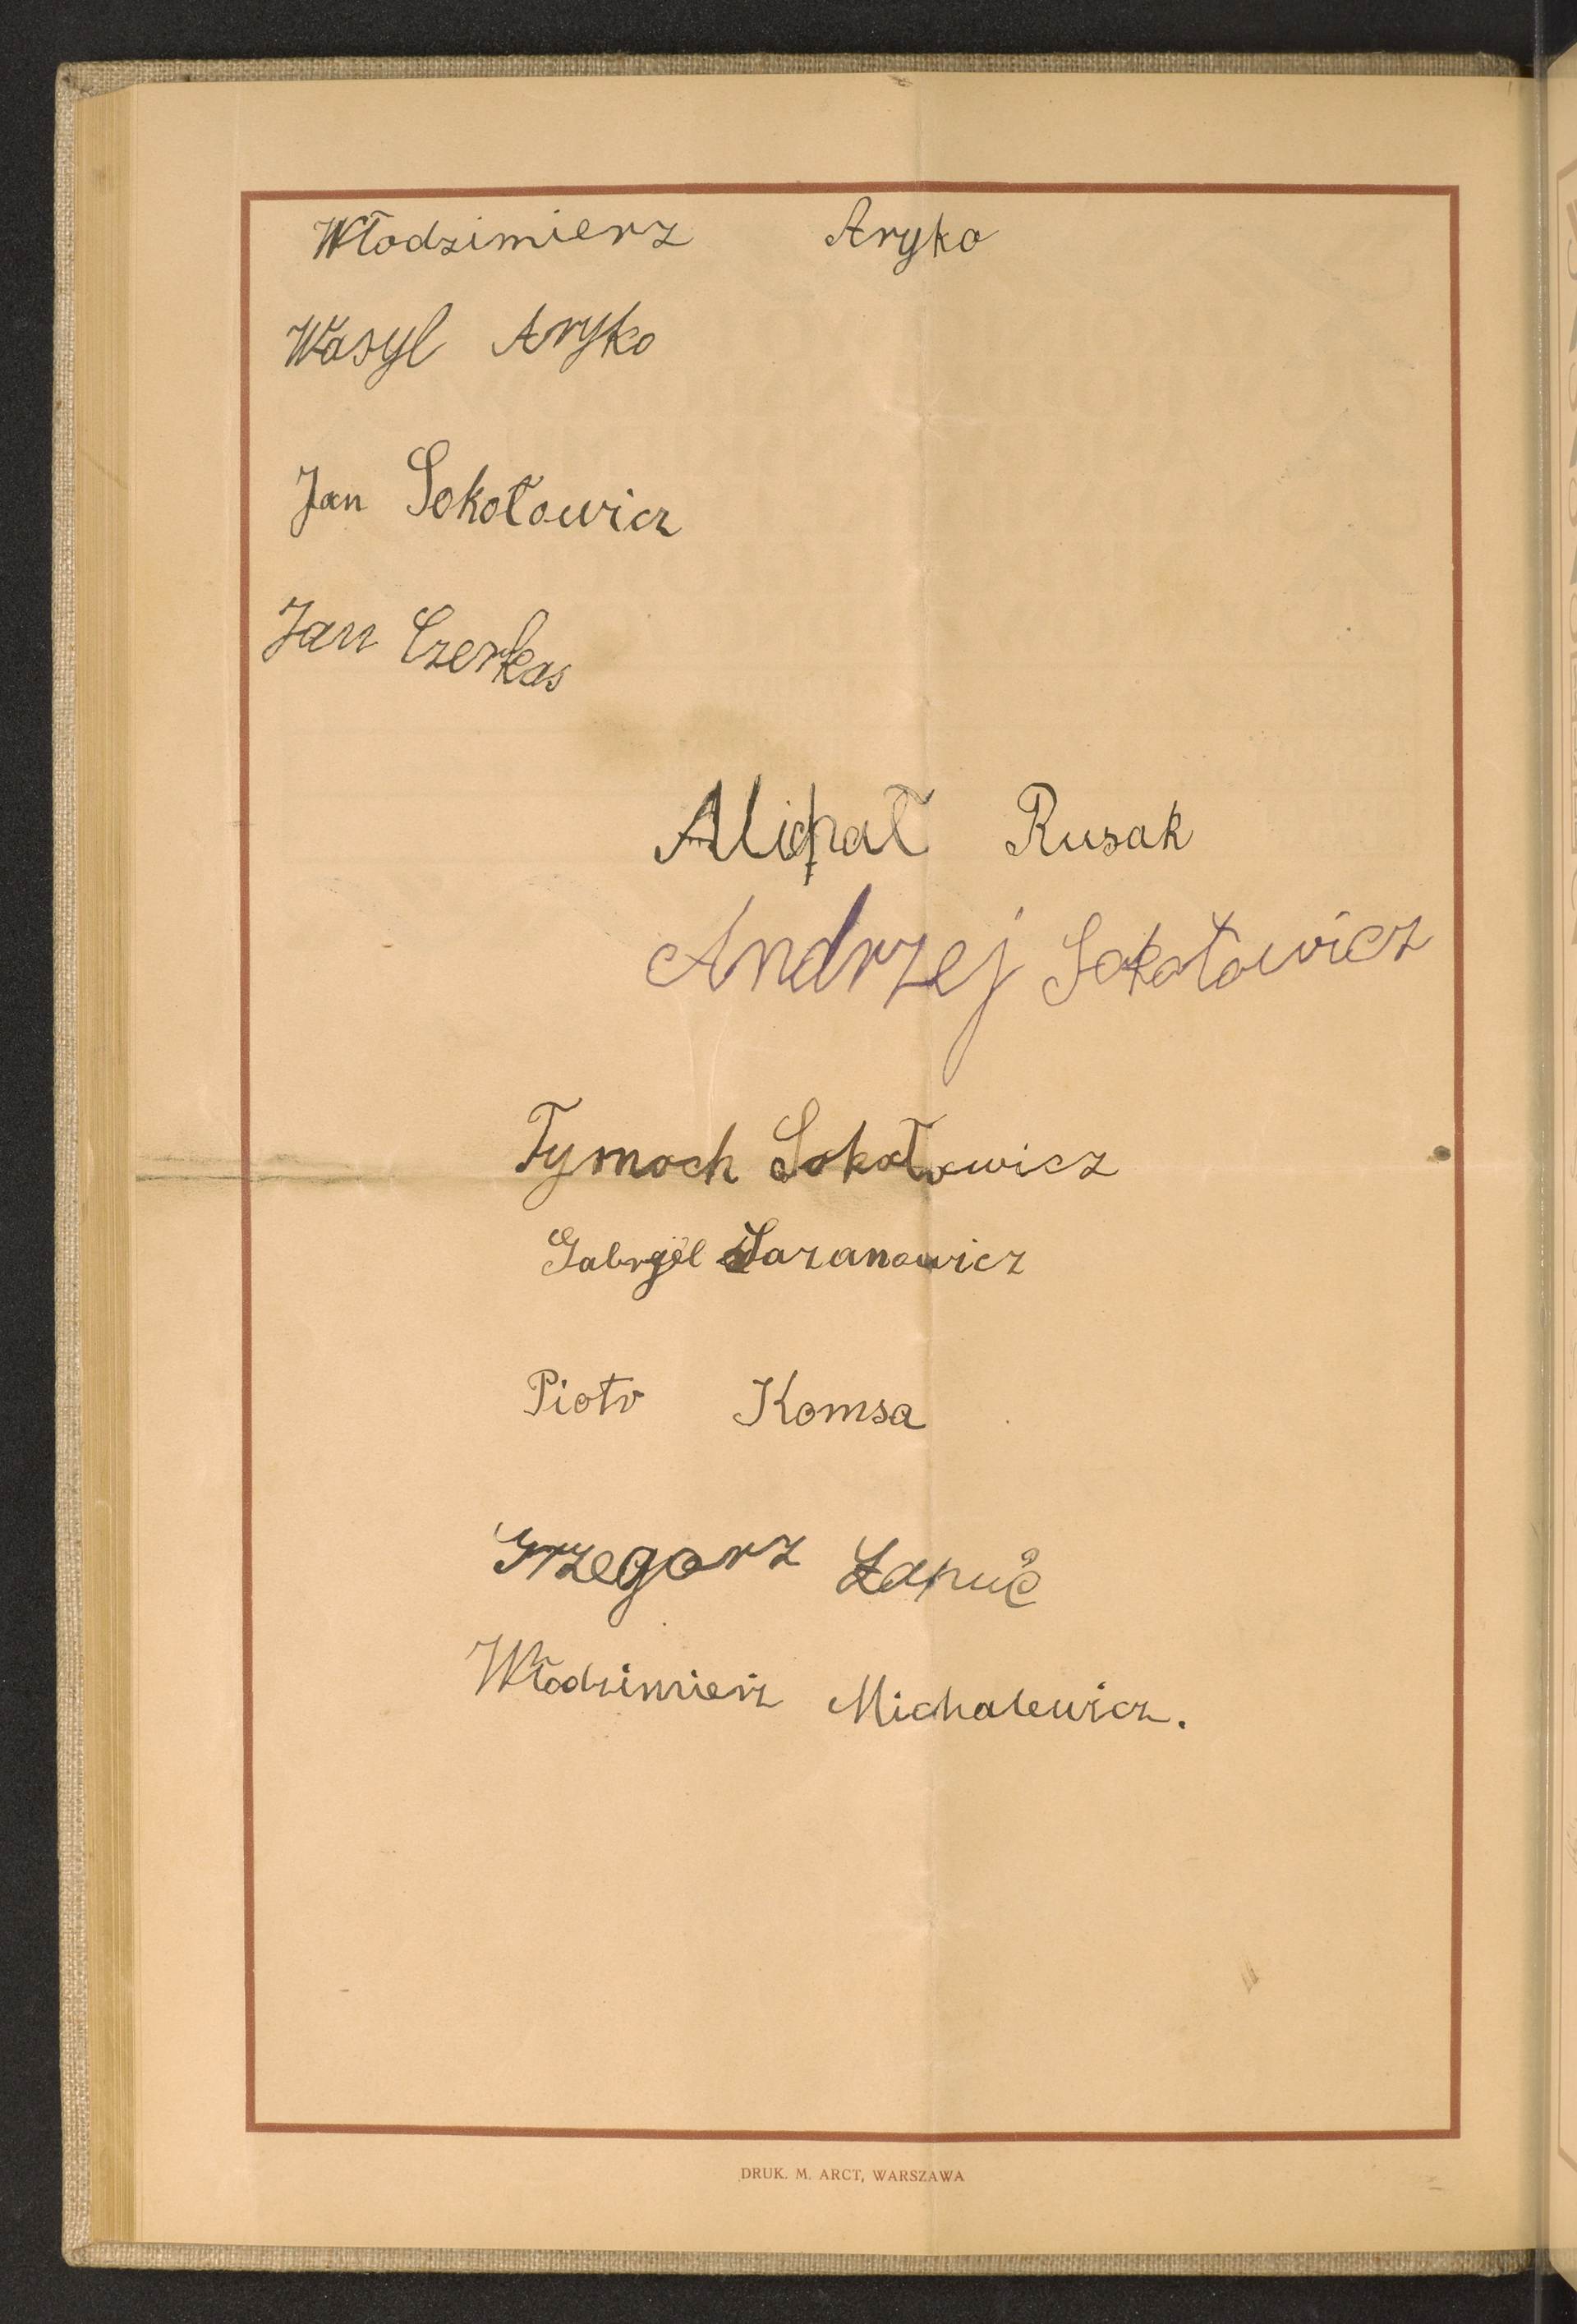 Włodzimierz Aryko
Wasyl Aryko
Jan Sokołowicz
Jan Czerkas
Michał Rusak
Andrzej Sokołowicz
Tymoch Sokołowicz
Gabrjel Sazanowicz
Piotr Komsa
Grzegorz Łapuć
Włodzimierz Michalewicz.
DRUK. M. ARCT, WARSZAWA